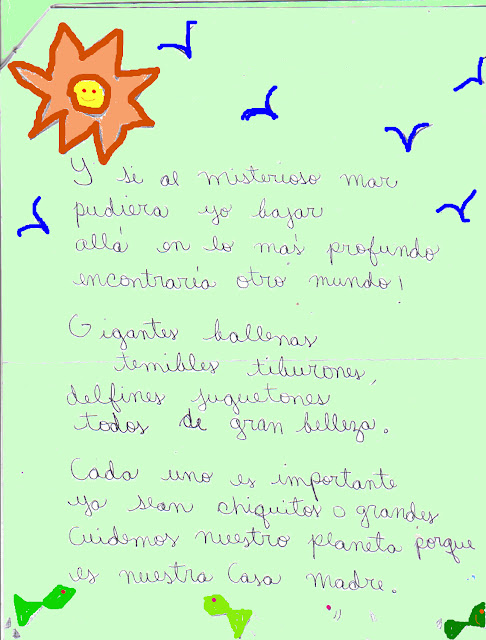 Y si al misterioso mar
pudiera yo bajar
allá en lo más profundo
encontraría otro mundo!
Gigantes ballenas
temibles tiburones,
delfines juguetones
todos de gran belleza.
Cada uno es importante
ya sean chiquitos o grandes
Cuidemos nuestro planeta porque
es nuestra Casa Madre.